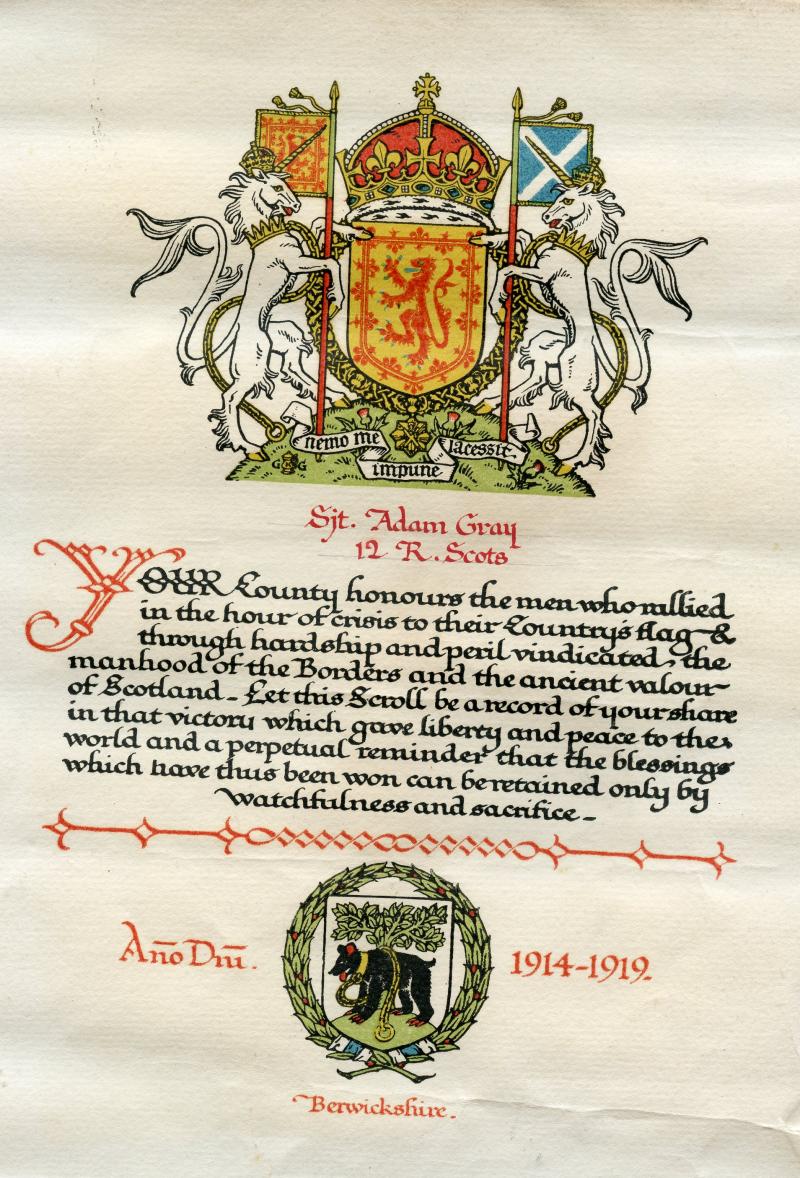 nemo me
impune
lacessit.
G G
Sjt. Adam Gray
12 R. Scots
YOUR County honours the men who rallied
in the hour of crisis to their Country's flag &
through hardship and peril vindicated the
manhood of the Borders and the ancient valour
of Scotland – Let this Scroll be a record of your share
in that victory which gave liberty and peace to the
world and a perpetual reminder that the blessings
which have thus been won can be retained only by
watchfulness and sacrifice –
Año Dm̄. 1914-1919.
Berwickshire.